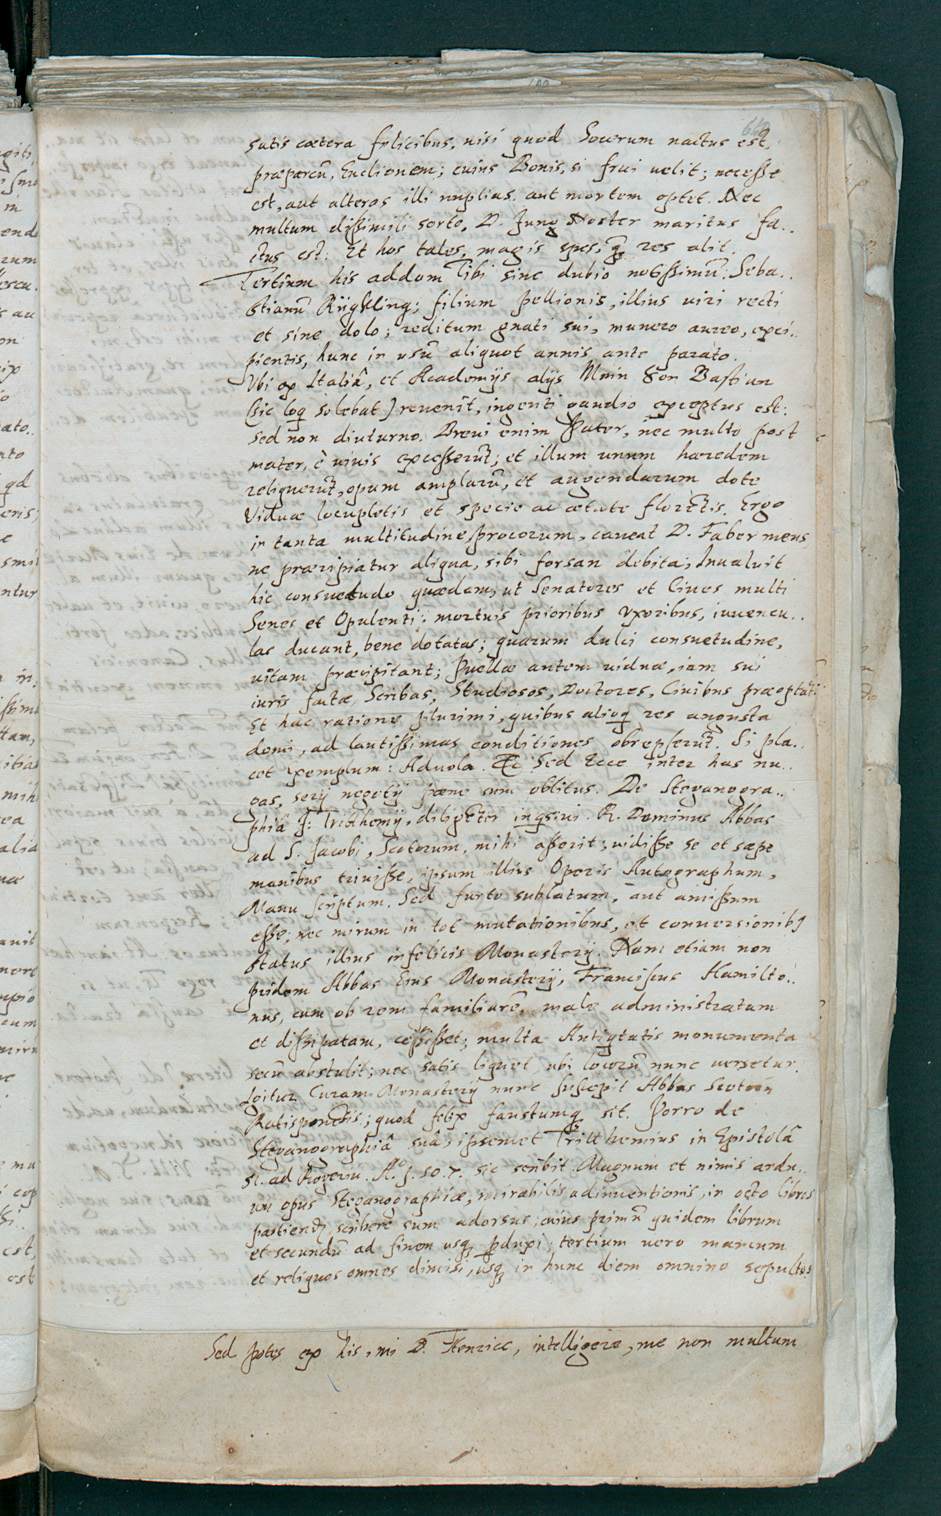 satis cætera felicibus, nisi quod Socerum nactus est
præparcū, Euclionem; cuius Bonis, si frui uelit; necesse
est, aut alteros illi nuptias aut mortem optet. Nec
multum dissimili sorte, D. Jung Noster maritus fa..
ctus est. Et hos talos, magis spes, res alit.
Tertium his addam Tibi sine dubio notissimū. Seba..
stianū filium pellionis, illius uiri recti
et sine dolo; reditum gnati sui, munere aureo, exci..
pientis, hunc in usū aliquot annis ante parato.
Vbi ex Italiâ, et Academijs alijs Main Son Bastian
(sic loq solebat) reuenit, ingenti gaudio exceptus est:
sed non diuturno. Breui enim Pater, nec multo post
mater, è uiuis excesserūt; et illum unum hæredem
reliquerūt, opum amplarū, et augendarum dote
Viduæ locupletis et specie ac ætate florētis. Ergo
in tanta multitudine procorum, caueat D. Faber meus
ne præripiatur aliqua, sibi forsan debita; Inualuit
hic consuetudo quædam, ut Senatores et Ciues multi
Senes et Opulenti: mortuis prioribus vxoribus, iuuencu..
las ducant, bene dotatas; quarum dulci consuetudine,
uitam præcipitant; Puellæ autem uiduæ, iam sui
iuris factæ, Scribas, Studiosos, Doctores, Ciuibus præoptāt
Et hac ratione plurimi, quibus alioq res angusta
domi, ad lautissimas conditiones obrepserūt. Si pla..
cet exemplum: Aduola. Sed Ecce inter has nu..
gas, serij negotij pæne sum oblitus. De Steganogra..
phiâ J. Trithemij, diligēter inqsiui. R. Dominus Abbas
ad S. Jacobi, Scotorum, mihi asserit; uidisse se et sæpe
manibus triuisse, ipsum illius Operis Autographum,
Manu scriptum. Sed furto sublatum, aut amissum
esse; nec mirum in tot mutationibus, et conuersionibq
status illius infelicis Monasterij. Nam etiam non
pridem Abbas Eius Monasterij, Franciscus Hamilto..
nus, cum ob rem familiarē, male administratam
et dissipatam, cessisset; multa Antiqtatis monumenta
secū abstulit; nec satis liquet ubi locorū nunc uersetur.
Igitur Curam Monasterij nunc suscepit Abbas Scotorū
Ratisponēsis; quod felix faustumq sit. Porro de
Steganographiâ suâ, ipsemet Tritthemius in Epistolâ
51. ad Rogeriū. A°. 1.50.7. sic scribit. Magnum et nimis ardu..
um opus steganographiæ, mirabilis adinuentionis, in octo libros
partiendū scribere sum adorsus; cuius primū quidem librum
et secundū ad finem usq pduxi; tertium uero mancum
et reliquos omnes dimisi, usq in hunc diem omnino sepultos.
Sed potes ex his, mi D. Henrice, intelligere, me non multum